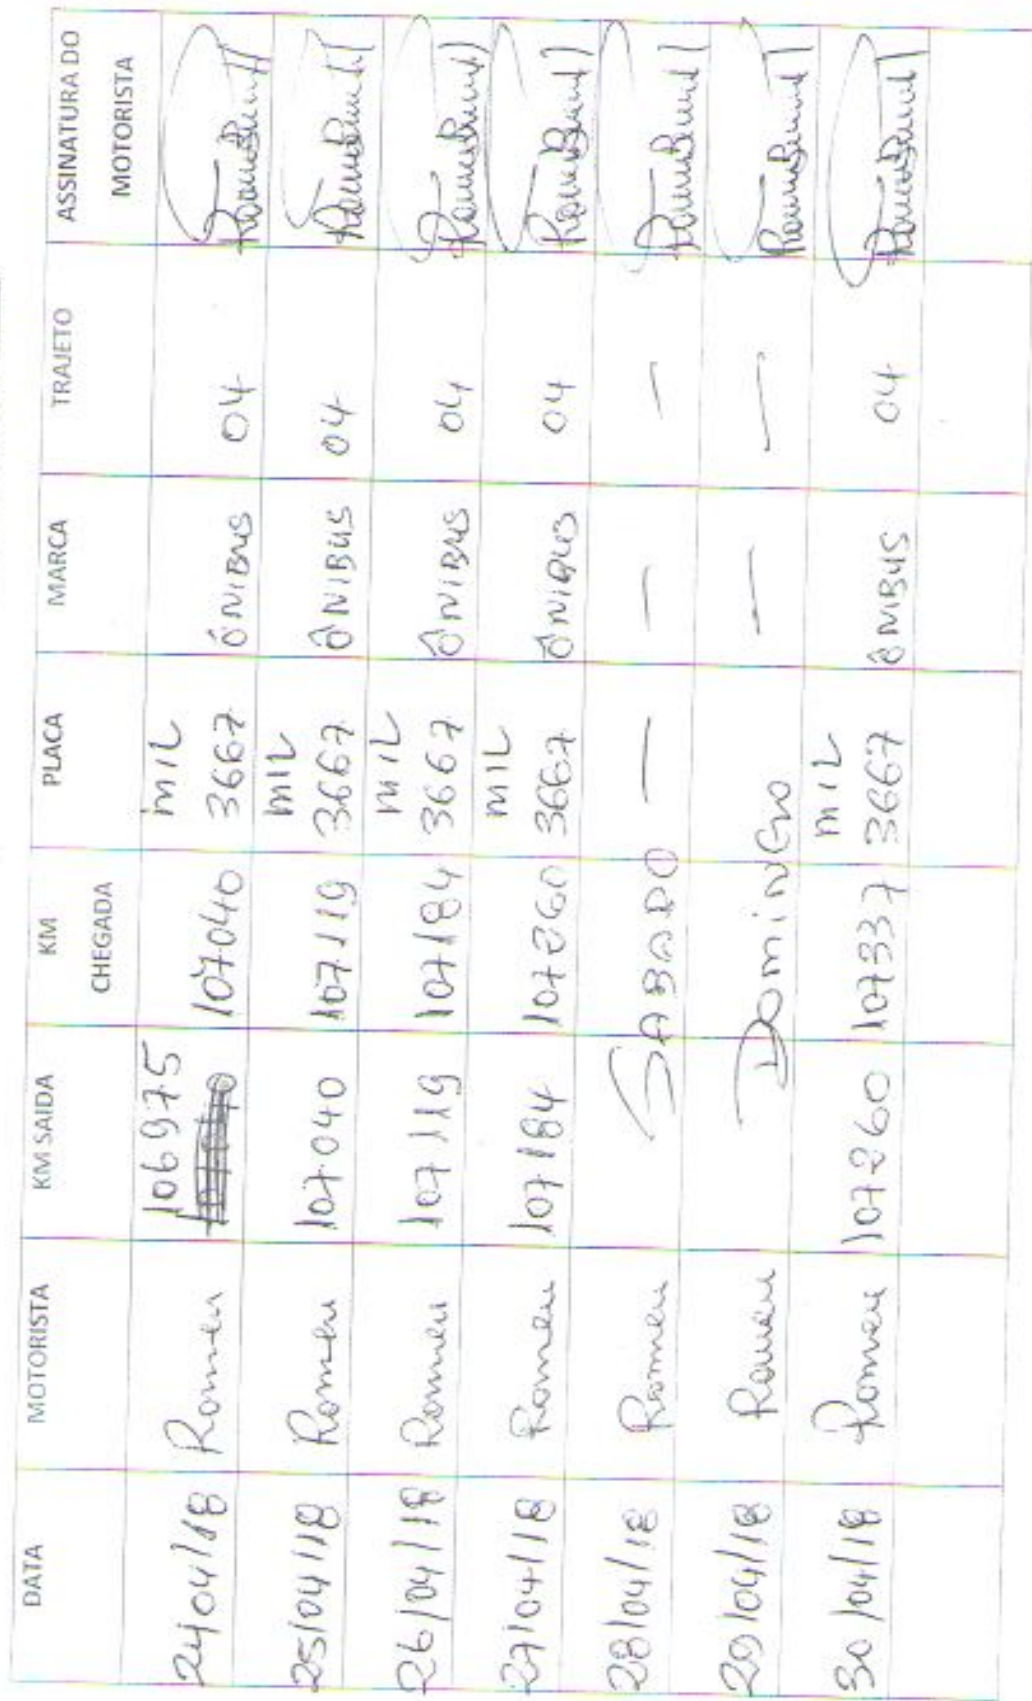 DATA MOTORISTA KM SAIDA KM CHEGADA PLACA MARCA TRAJETO ASSINATURA DO MOTORISTA
24/04/18 Romeu 106975 107040 MIL 3667 ÔNIBUS 04
25/04/18 Romeu 107040 107119 MIL 3667 ÔNIBUS 04
26/04/18 Romeu 107119 107184 MIL 3667 ÔNIBUS 04
27/04/18 Romeu 107184 107260 MIL 3667 ÔNIBUS 04
28/04/18 Romeu SABADO — — —
29/04/18 Romeu DOMINGO — —
30/04/18 Romeu 107260 107337 MIL 3667 ÔNIBUS 04